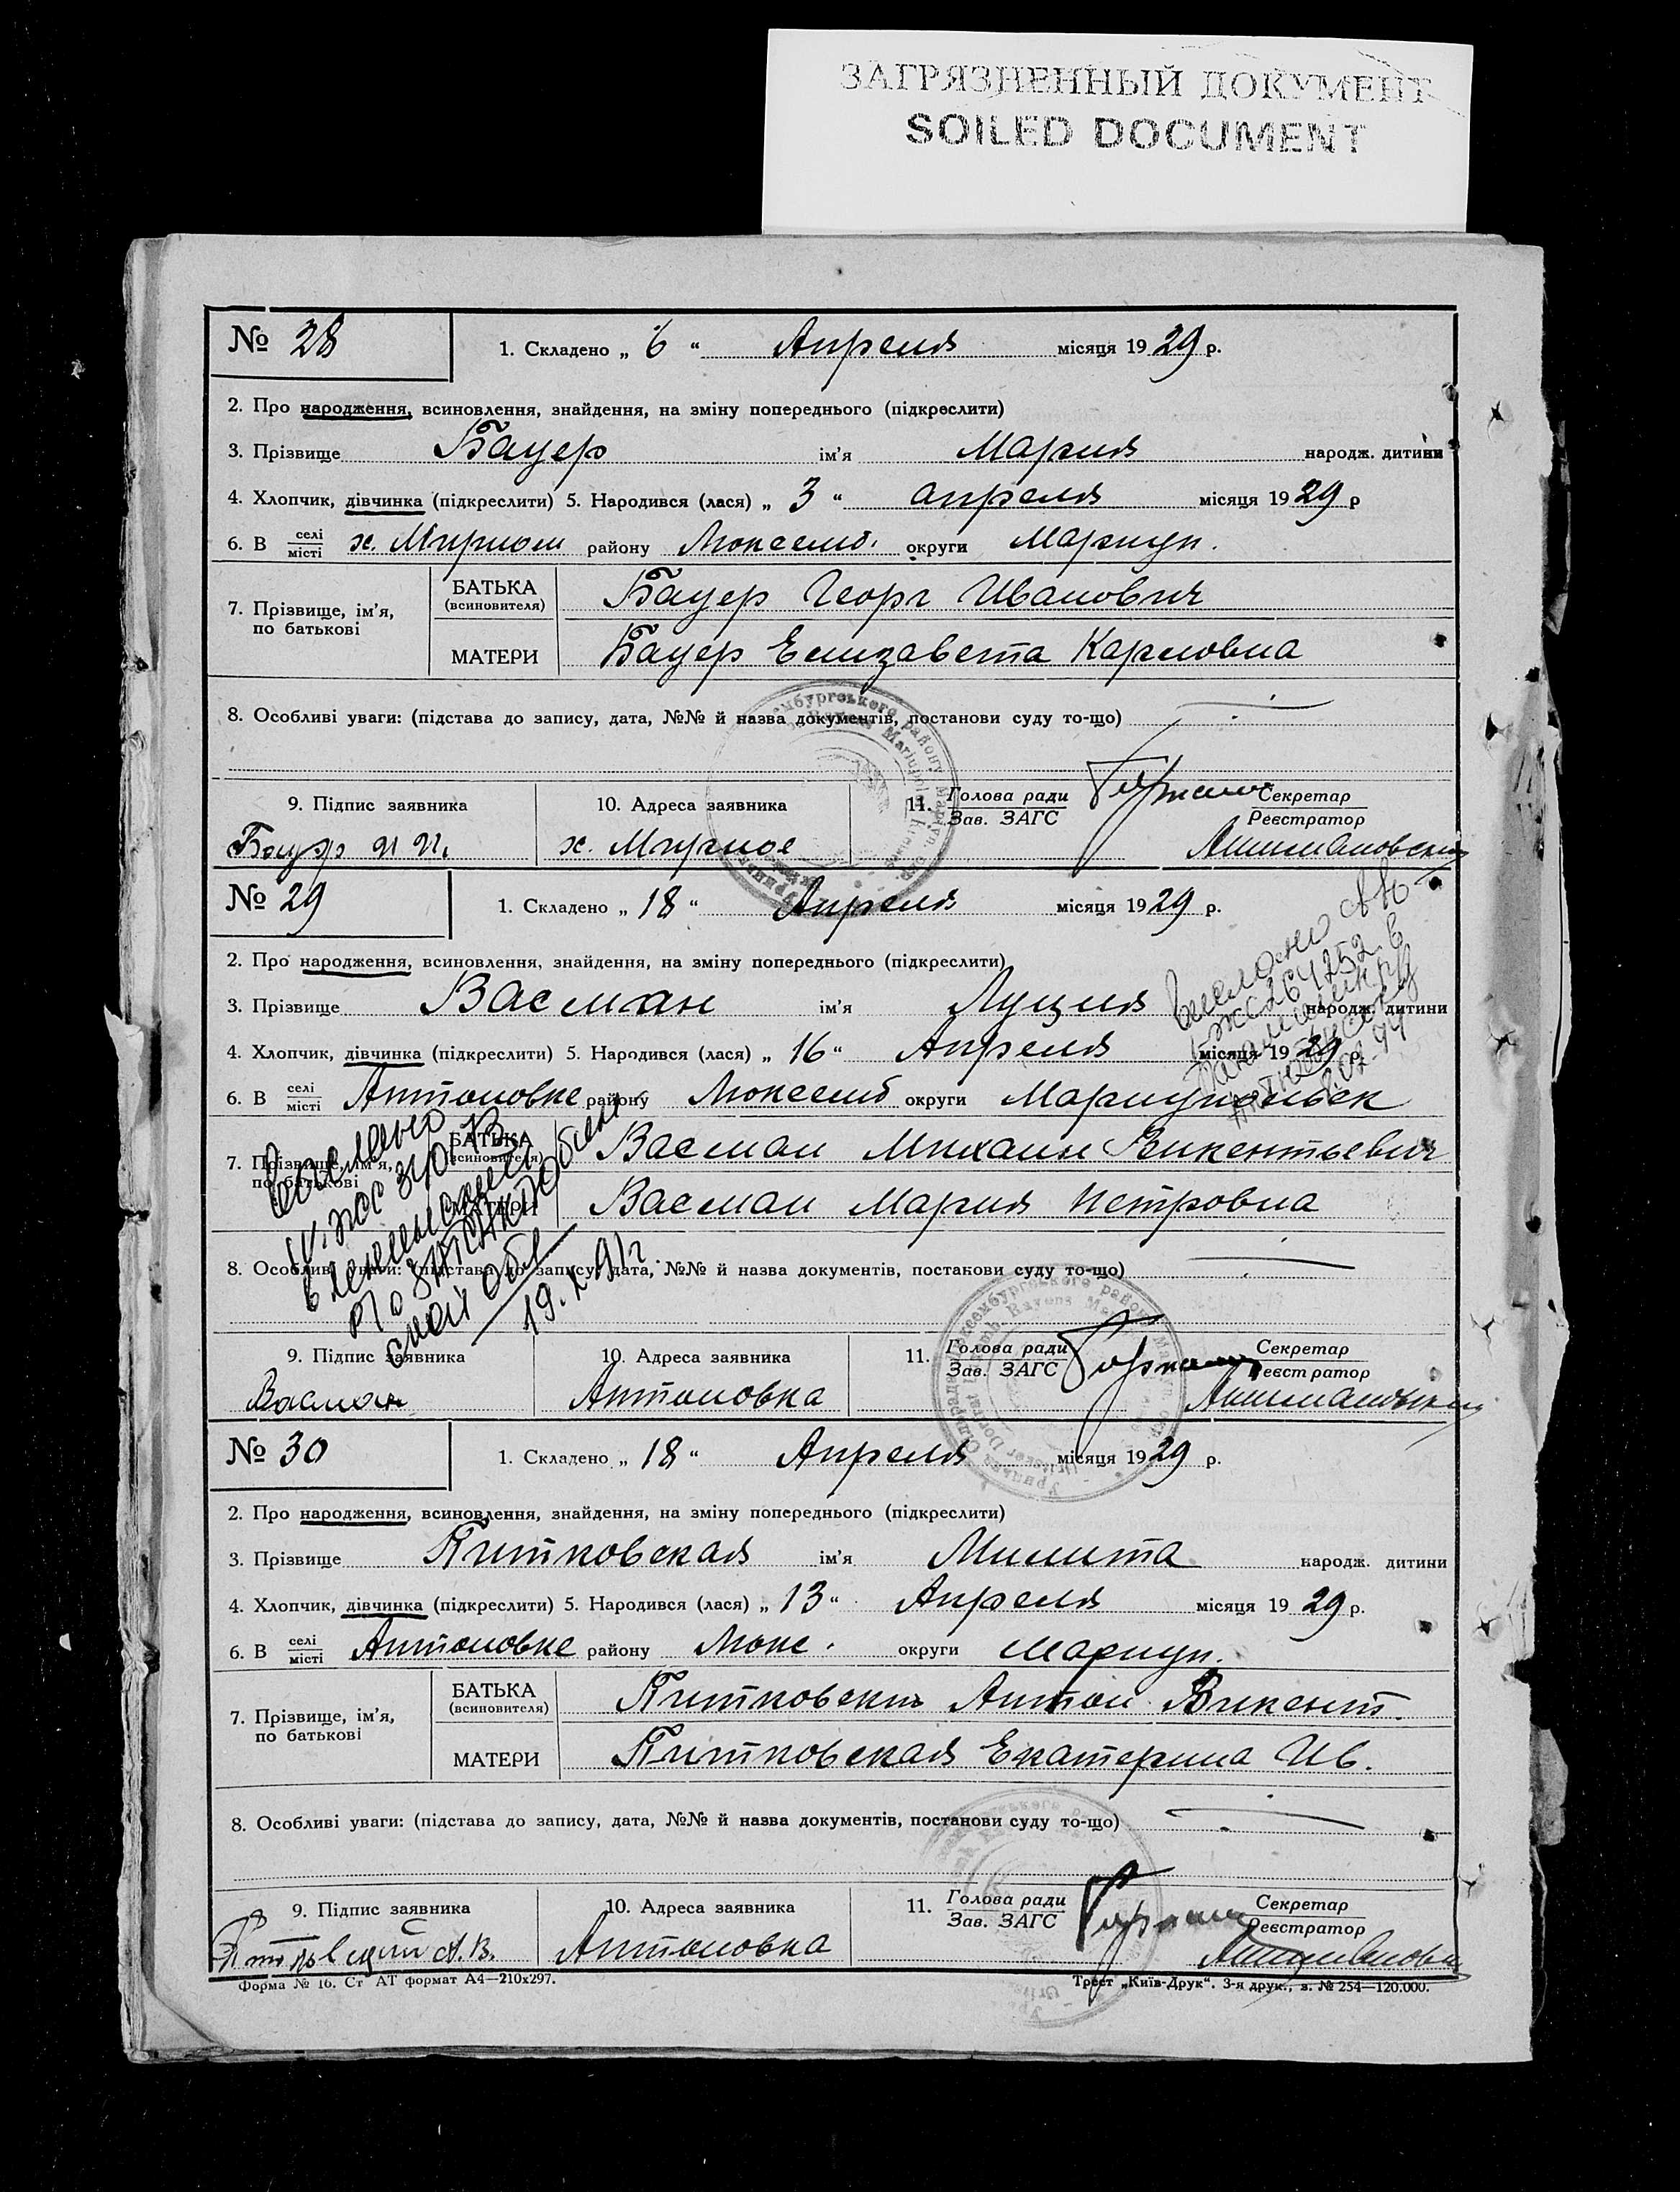 ЗАГРЯЗНЕННЫЙ ДОКУМЕНТ
SOILED DOCUMENT
№ 28
1. Складено „ 6 “ Апреля місяця 1929 р.
2. Про народження, всиновлення, знайдення, на зміну попереднього (підкреслити)
3. Прізвище Бауер ім’я Мария народж. дитини
4. Хлопчик, дівчинка (підкреслити) 5. Народився (лася) „ 3 “ апреля місяця 1929 р
6. В селі місті х. Мирном району Люксемб. округи Мариуп.
7. Прізвище, ім’я, по батькові
БАТЬКА (всиновителя) Бауер Георг Иванович
МАТЕРИ Бауер Елизавета Карловна
8. Особливі уваги: (підстава до запису, дата, №№ й назва документів, постанови суду то-що)
9. Підпис заявника
10. Адреса заявника
11. Голова ради Зав. ЗАГС
Секретар Реєстратор
Бауэр х. Мирное
№ 29
1. Складено „ 18 “ Апреля місяця 1929 р.
2. Про народження, всиновлення, знайдення, на зміну попереднього (підкреслити)
3. Прізвище Васман ім’я Луция народж. дитини
4. Хлопчик, дівчинка (підкреслити) 5. Народився (лася) „ 16 “ Апреля місяця 1929 р
6. В селі місті Антоновке району Люксемб округи
7. Прізвище, ім’я, по батькові
БАТЬКА (всиновителя) Васман Михаил Викентьевич
МАТЕРИ Васман Мария Петровна
8. Особливі уваги: (підстава до запису, дата, №№ й назва документів, постанови суду то-що)
9. Підпис заявника
10. Адреса заявника
11. Голова ради Зав. ЗАГС
Секретар Реєстратор
Васман Антоновка
№ 30
1. Складено „ 18 “ Апреля місяця 1929 р.
2. Про народження, всиновлення, знайдення, на зміну попереднього (підкреслити)
3. Прізвище Питковская ім’я Милита народж. дитини
4. Хлопчик, дівчинка (підкреслити) 5. Народився (лася) „ 13 “ Апреля місяця 1929 р.
6. В селі місті Антоновке району Люкс. округи Мариуп.
7. Прізвище, ім’я, по батькові
БАТЬКА (всиновителя) Питковский Антон Викент.
МАТЕРИ Питковская Екатерина Ив.
8. Особливі уваги: (підстава до запису, дата, №№ й назва документів, постанови суду то-що)
9. Підпис заявника
10. Адреса заявника
11. Голова ради Зав. ЗАГС
Секретар Реєстратор
А.В. Антоновка
Форма № 16. Ст АТ формат А4—210х297.
Трест „Київ-Друк“. 3-я друк., з. № 254—120.000.